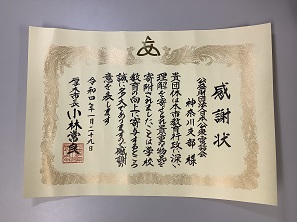 感謝状
公益財団法人日本公衆電話会
神奈川支部 様
貴団体は本市教育行政に深い
理解を寄せられ貴重な物品を
寄附されましたことは学校
教育の向上に寄与するところ
誠に多大でありますので感謝の
意を表します
令和四年一月二十九日
厚木市長 小林常良